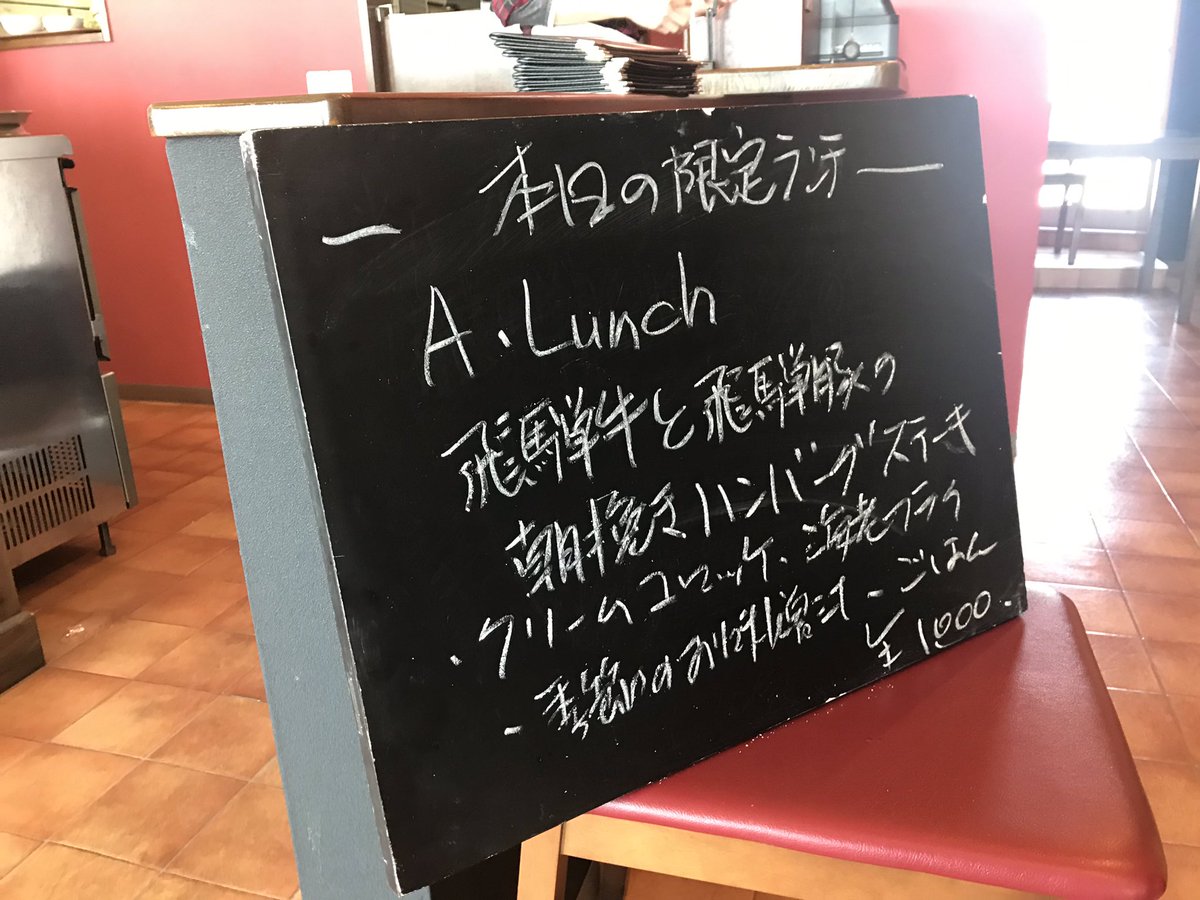 — 本日の限定ランチ —
A・Lunch
飛騨牛と飛騨豚の
朝挽きハンバーグステーキ
・クリームコロッケ、海老フライ
・手造りのお味噌汁・ごはん
¥1000.